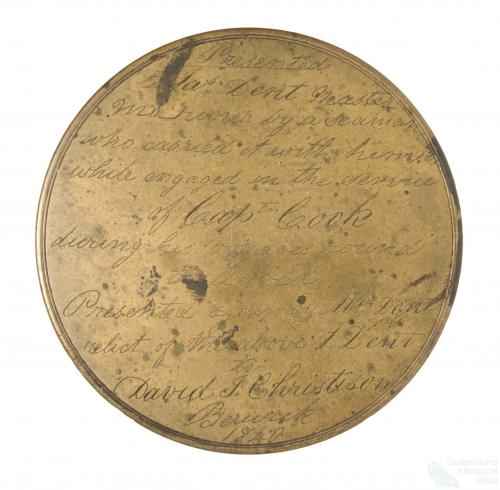 Presented
Jas Dent Master
Mariner by a seaman
who carried it with him
while engaged in the service
of Captn Cook
during his voyage round
Presented by Mrs Dent
relict of the above J Dent
to
David J. Christison
Berwick
1840
Queensland
Historical
Atlas